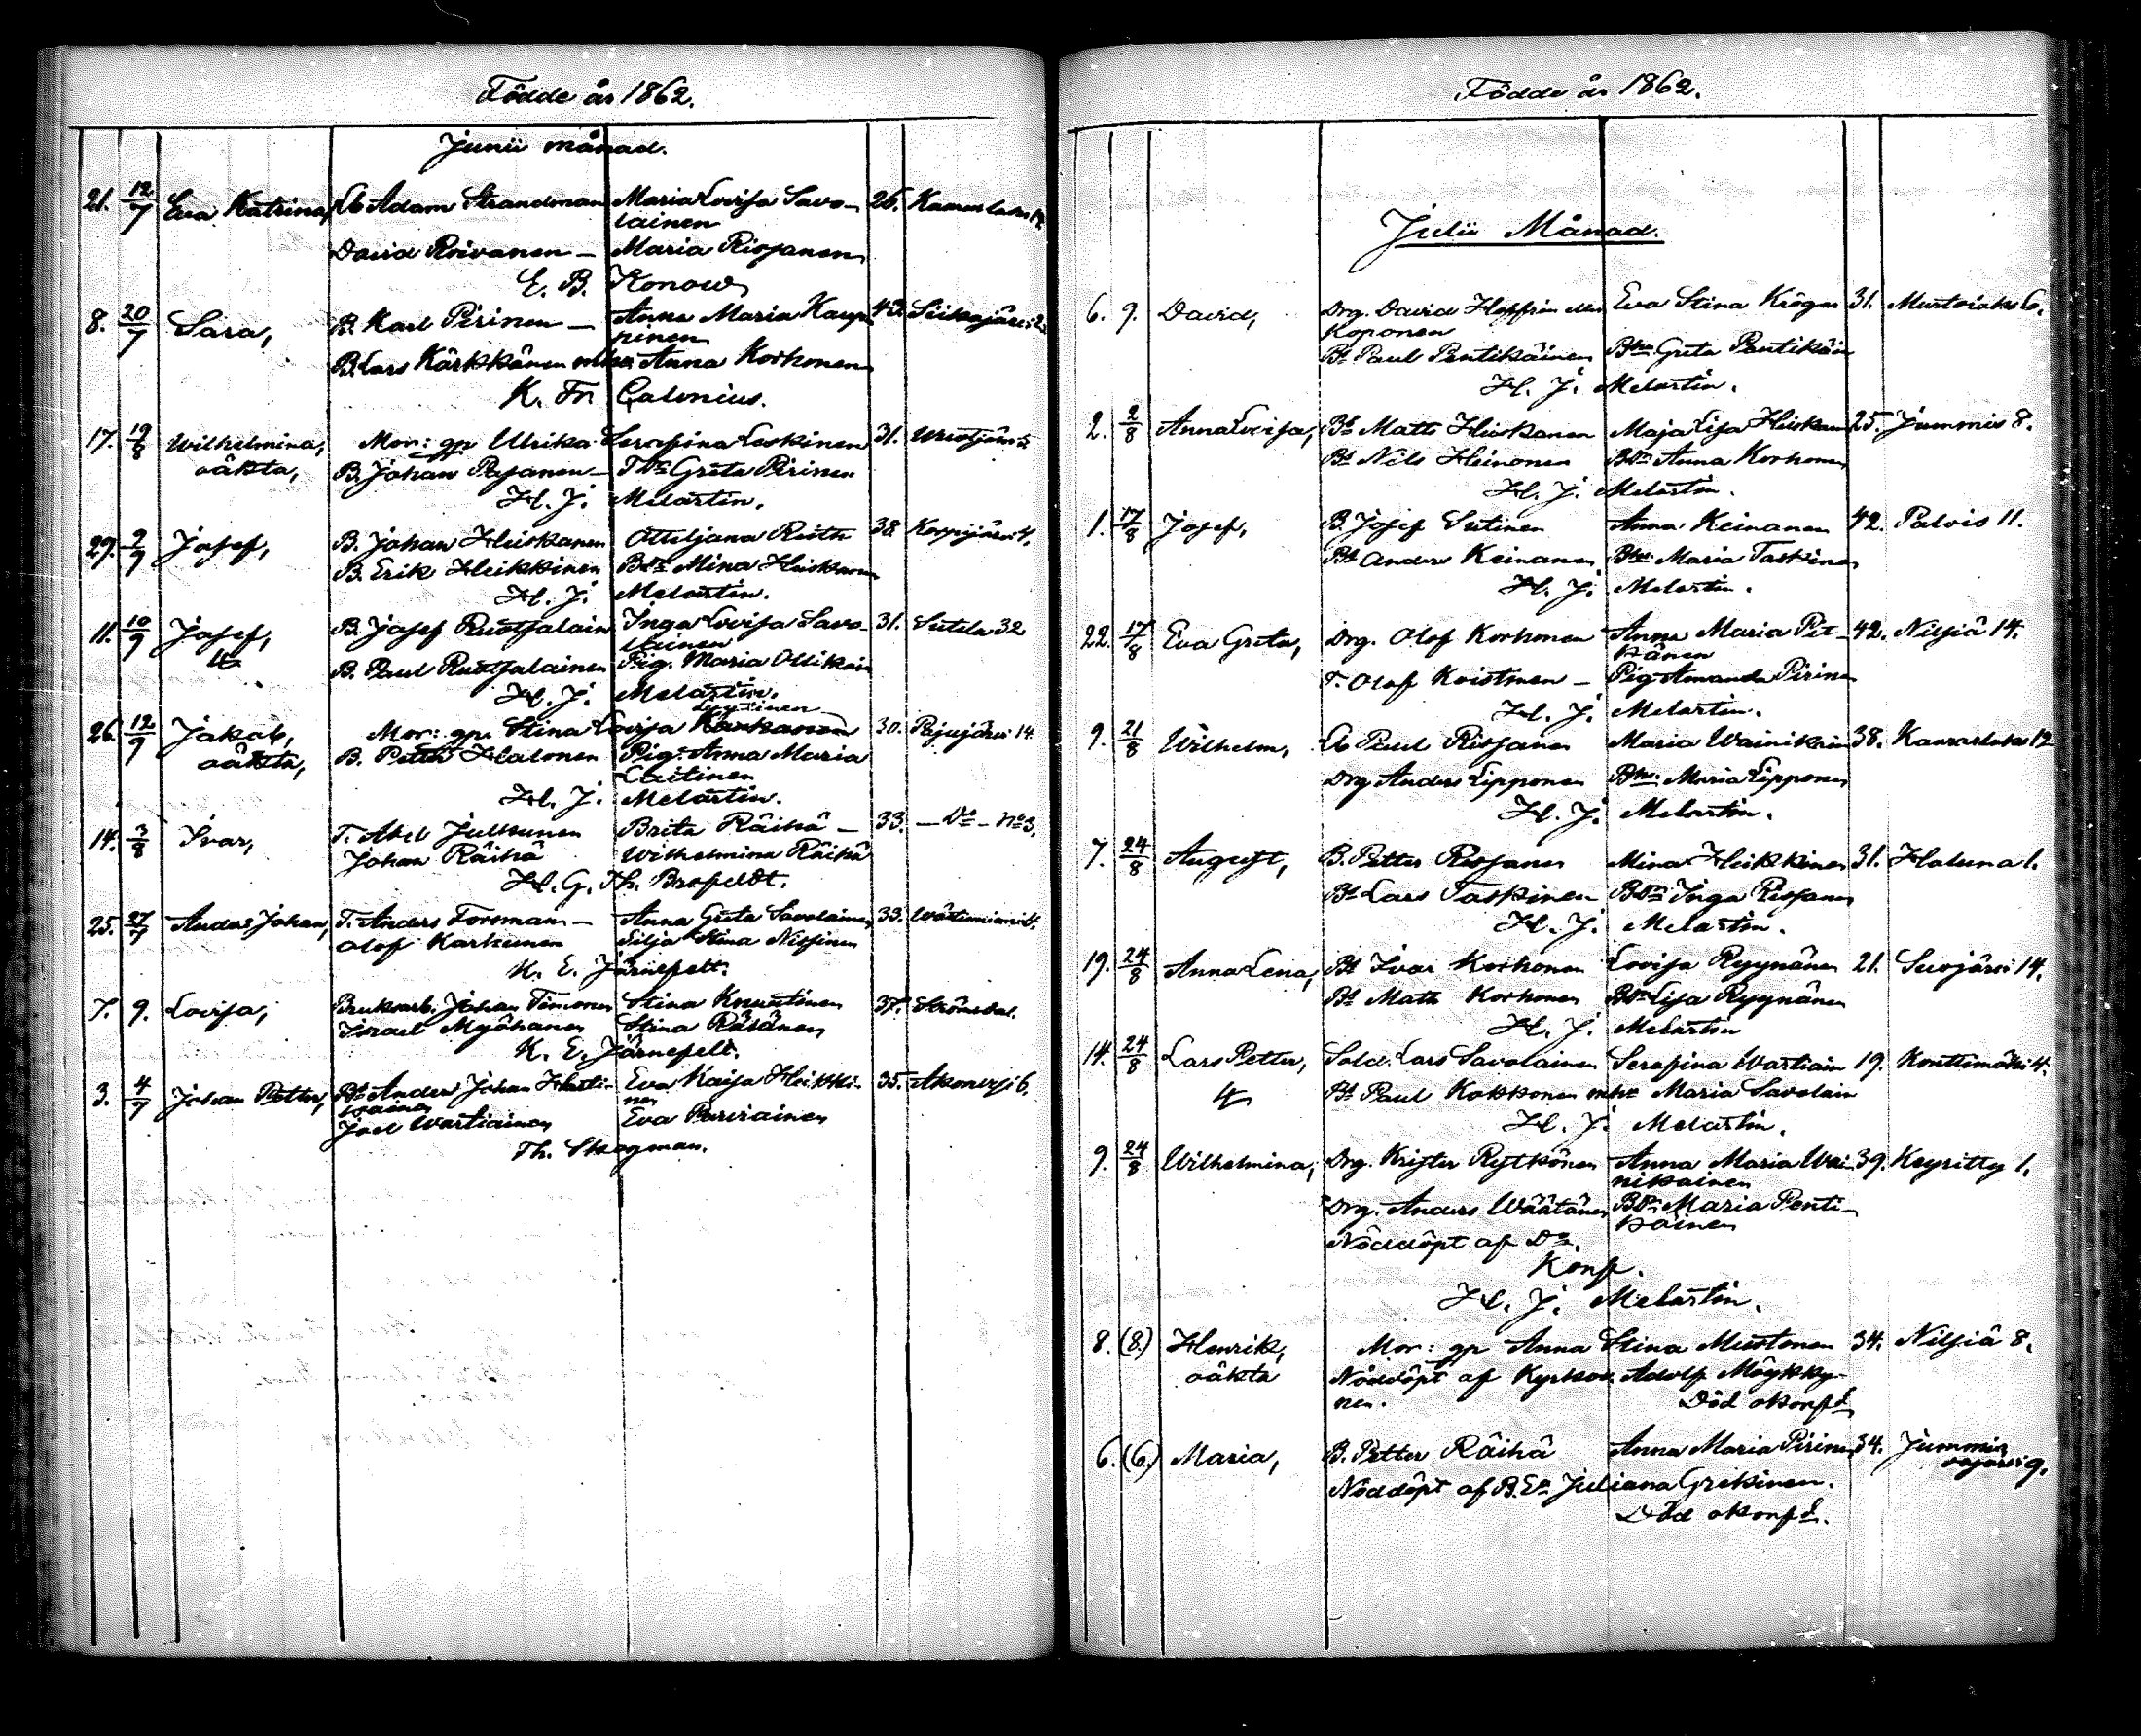 Födde år 1862.
Junii månad.
21. 12/7 Eva Katrina, Lb Adam Strandman Maria Lovisa Savo- 26. Kaarasl. 12
lainen
David Roivanen — Maria Risjanen
E. B. Konow
8. 20/7 Sara, B. Karl Pirinen — Anna Maria Kaup- 43. Siikajärvi 2.
pinen
B. Lars Kärkkänen mhu Anna Korhonen
K. Fr. Calonius.
17. 19/8 Wilhelmina, Mor: gp Ulrika Serafina Leskinen 31.
oäkta, B. Johan Pajanen — Greta Pirinen
H. J. Melartin.
29. 2/9 Josef, B. Johan Heiskanen Otteljana Ruth 38. Korpijärvi 4.
B. Erik Heikkinen Bdr Mina Heiskanen
H. J. Melartin.
11. 10/9 Josef, B. Josef Ruotsalain Inga Lovisa Savo- 31. Sutela 32
lainen
B. Paul Ruotsalainen Pig. Maria Ollikain
H. J. Melartin.
Lyytinen
26. 12/9 Jakob, Mor: gp. Stina Lovisa 30. Pajujärvi 14.
oäkta, B. Petter Halonen Pig. Anna Maria
Laitinen
H. J. Melartin.
14. 3/8 Ivar, T. Abel Julkunen Brita Räihä — 33. — Do — No 3.
Johan Räihä Wilhelmina Räihä
H. G. Th. Brofeldt.
25. 27/7 Anders Johan, T. Anders Forsman — Anna Greta Savolainen 33.
Olof Karhunen Silja Stina Nilsinen
K. E. Järnefelt.
7. 9. Lovisa, Bruksarb. Johan Timonen Stina Knuutinen 37. Strömsdal.
Israel Myöhänen Stina Räsänen
K. E. Järnefelt.
3. 4/7 Johan Petter, Bd Anders Johan Eva Kaisa Heikki- 35. Akonvesi 6.
nen
Joel Wartiainen Eva Parviainen
Th. Skogman.
Födde år 1862.
Julii Månad.
6. 9. David, Drg. David Hoffrén eller Eva Stina Kröger 31. Murtolaks 6.
Koponen
Bd Paul Pentikäinen Bhu Greta Pentikäin
H. J. Melartin.
2. 2/8 Anna Lovisa, Bd Matts Heiskanen Maja Lisa Heiskanen 25. Jummis 8.
Bd Nils Heinonen Bdr Anna Korhonen
H. J. Melartin.
1. 17/8 Josef, B. Josef Sutinen Anna Keinanen 42. Palois 11.
Bd Anders Keinanen Bhu Maria Taskinen
H. J. Melartin.
22. 17/8 Eva Greta, Drg. Olof Korhonen Anna Maria Pit- 42. Nilsiä 14.
känen
T. Olof Koistinen — Pig Amanda Pirinen
H. J. Melartin.
9. 21/8 Wilhelm, Lb Paul Risjanen Maria Wainikain 38. Kaaraslaks 12
Drg Anders Lipponen Bhu Maria Lipponen
H. J. Melartin.
7. 24/8 August, B. Petter Risjanen Mina Heikkinen 31. Haluna 1.
Bd Lars Taskinen Bdr Inga Risjanen
H. J. Melartin.
19. 24/8 Anna Lena, Bd Ivar Korhonen Lovisa Ryynänen 21. Suojärvi 14.
Bd Matts Korhonen Bdr Lisa Ryynänen
H. J. Melartin
14. 24/8 Lars Petter, Sold. Lars Savolainen Serafina Wartiain 19. Konttimäki 4.
Bd Paul Kokkonen mhu Maria Savolain
H. J. Melartin.
9. 24/8 Wilhelmina, Drg. Krister Rytkönen Anna Maria Wai- 39. Keyritty 1.
nikainen
Drg. Anders Wäätänen Bdr Maria Penti-
käinen
Nöddöpt af Do.
Konf.
H. J. Melartin.
8. (8.) Henrik, Mor: gp Anna Stina Mustonen 34. Nilsiä 8.
oäkta Nöddöpt af Kyrkov. Adolf Möykky-
nen. Död okonfd
6. (6.) Maria, B. Petter Räihä Anna Maria Pirinen 34. Jummis
vajärvi 9.
Nöddöpt af B.Er Juliana Grekinen.
Död okonfd.